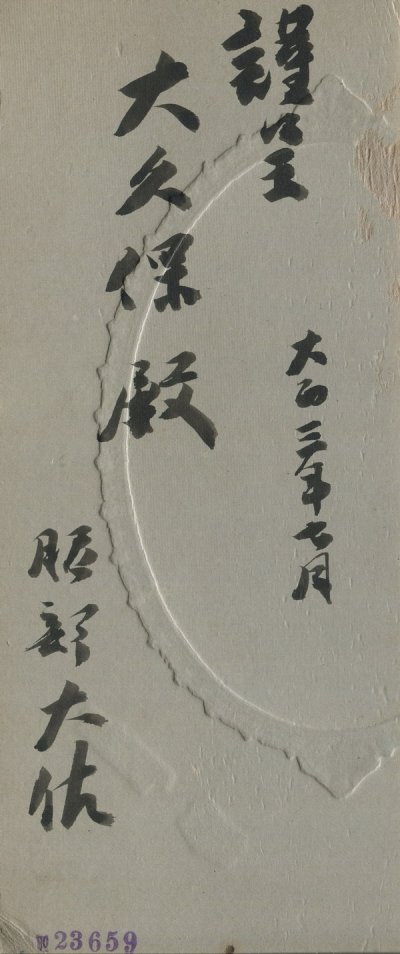 謹呈
大正三年七月
大久保殿
服部大佐
№ 23659